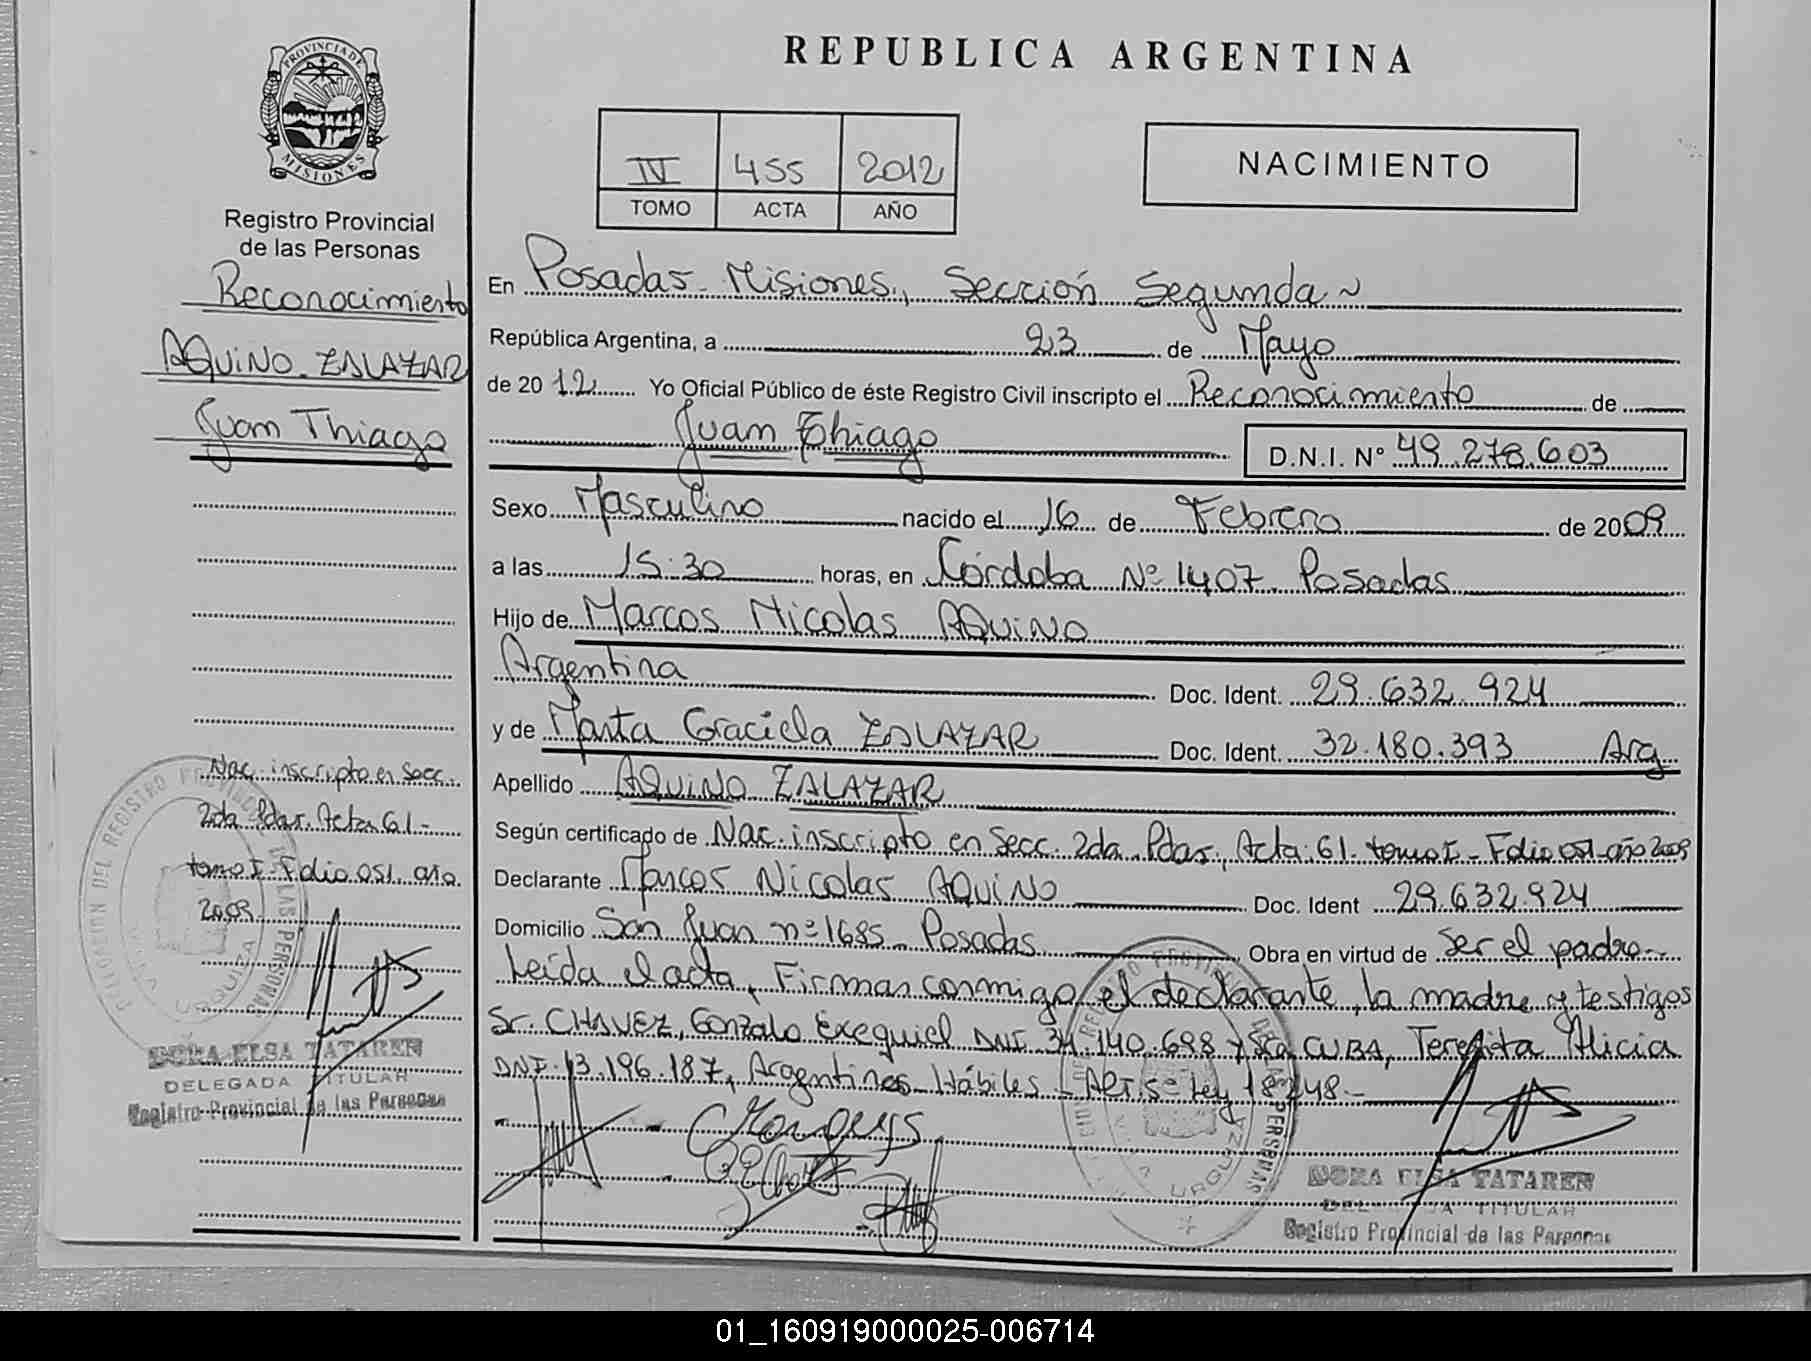 REPUBLICA ARGENTINA
PROVINCIA DE
MISIONES
Registro Provincial
de las Personas
Reconocimiento
AQUINO ZALAZAR
Juan Thiago
Nac. inscripto en Secc.
2da Pdas. Acta 61 -
tomo I - Folio 051 año
2009
DORA ELSA TATAREN
DELEGADA TITULAR
Registro Provincial de las Personas
IV 455 2012
TOMO ACTA AÑO
NACIMIENTO
En Posadas - Misiones, Sección Segunda ~
República Argentina, a 23 de Mayo
de 20 12 Yo Oficial Público de éste Registro Civil inscripto el Reconocimiento de
Juan Thiago D.N.I. Nº 49.278.603
Sexo Masculino nacido el 16 de Febrero de 2009
a las 15:30 horas, en Córdoba Nº 1407 Posadas
Hijo de Marcos Nicolas AQUINO
Argentina Doc. Ident. 29.632.924
y de Marta Graciela ZALAZAR Doc. Ident. 32.180.393 Arg
Apellido AQUINO ZALAZAR
Según certificado de Nac. inscripto en Secc. 2da. Pdas., Acta: 61 - tomo I - Folio 051 - año 2009
Declarante Marcos Nicolas AQUINO Doc. Ident 29.632.924
Domicilio San Juan nº 1685 - Posadas Obra en virtud de Ser el padre -
Leída el acta, Firman conmigo el declarante, la madre y testigos
Sr. CHAVEZ, Gonzalo Exequiel DNI 34.140.698 y Sra CUBA, Teresita Alicia
DNI 13.196.187, Argentinos - Hábiles - ART. 5º Ley 18248 -
DORA ELSA TATAREN
DELEGADA TITULAR
Registro Provincial de las Personas
01_160919000025-006714